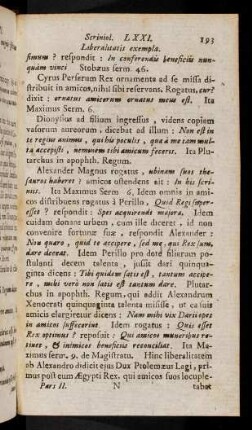 Scriniol. LXXI. 193
Liberalitatis exempla.
simum ? respondit : In conferendis beneficiis nun-
quam vinci Stobæus serm. 46.
Cyrus Persarum Rex ornamenta ad se missa di-
stribuit in amicos, nihil sibi reservans. Rogatus, cur?
dixit ; ornatus amicorum ornatus meus est. Ita
Maximus Serm. 6.
Dionysius ad filium ingressus , videns copiam
vasorum aureorum , dicebat ad illum : Non est in
te regius animus , qui his poculis , quæ à me tam mul-
ta accepisti , neminem tibi amicum feceris. Ita Plu-
tarchus in apophth. Regum.
Alexander Magnus rogatus , ubinam suos the-
sauros haberet ? amicos ostendens ait : In his scri-
niis. Ita Maximus Serm 6. Idem omnia in ami-
cos distribuens rogatus à Perillo , Quid Regi super-
esset ? respondit : spes acquirendi majora. Idem
cuidam donare urbem , cum ille diceret , id non
convenire fortunæ suæ , respondit Alexander :
Non quæro , quid te accipere , sed me, qui Rex sum,
dare deceat. Idem Perillo pro dote filierum po-
stulanti decem talenta , jussit dari quinqua-
ginta dicens : Tibi quidem satis est , tantum accipe-
re , mihi verò non satis est tantum dare. Plutar-
chus in apophth. Regum , qui addit Alexandrum
Xenocrati quinquaginta talenta misisse , ut ea suis
amicis elargiretur dicens : Nam mihi vix Darii opes
in amicos suffecerint. Idem rogatus : Quis esset
Rex optimus ? reposuit : Qui amicos muneribus re-
tinet , & inimicos beneficiis reconciliat. Ita Ma-
ximus serm. 9. de Magistratu. Hinc liberalitatem
ab Alexandro didicit ejus Dux Ptolemæus Lagi , pri-
mus post eum Ægypti Rex. qui amicos suos locuple-
Pars II. N tabat